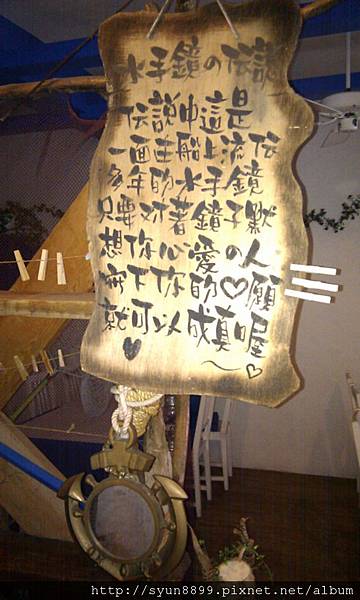 水手鏡の伝說
伝說中這是
一面在船上流伝
多年的水手鏡
只要对著鏡子默
想你心愛の人
許下你的♡願
就可以成真喔
♥ ～♡
http://syun8899.pixnet.net/album